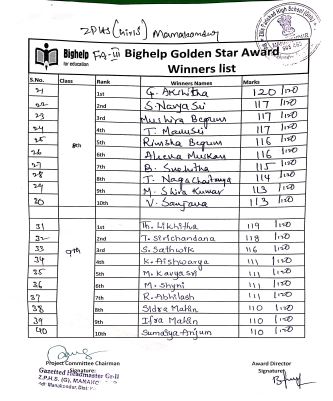 ZPHS (Girls) Manakondur
Bighelp
for education
FA-III Bighelp Golden Star Award
Winners list
S.No. Class Rank Winners Names Marks
21 8th 1st G. Akshitha 120/120
22 2nd S. Navya Sri 117/120
23 3rd Mushira Begum 117/120
24 4th T. Manusri 117/120
25 5th Rimsha Begum 116/120
26 6th Aleena Muskan 116/120
27 7th B. Suchitha 115/120
28 8th T. Naga Chaitanya 114/120
29 9th M. Shiva Kumar 113/120
30 10th V. Sanjana 113/120
31 9th 1st Th. Likhitha 119/120
32 2nd T. Sirichandana 118/120
33 3rd S. Sathwik 116/120
34 4th K. Aishwarya 111/120
35 5th M. Kavya Sri 111/120
36 6th M. Shyni 111/120
37 7th R. Abhilash 111/120
38 8th Sidra Mahin 110/120
39 9th Ifra Mahin 110/120
40 10th Sumaiya Anjum 110/120
Project Committee Chairman Award Director
Signature: Signature
Gazetted Headmaster Gr-II
Z.P.H.S. (G), MANAKO
Manakondur, Dist